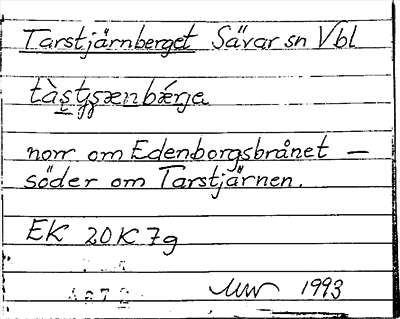 Tarstjärnberget Sävar sn Vbl
norr om Edenborgsbrånet —
söder om Tarstjärnen.
EK 20K7g
1993